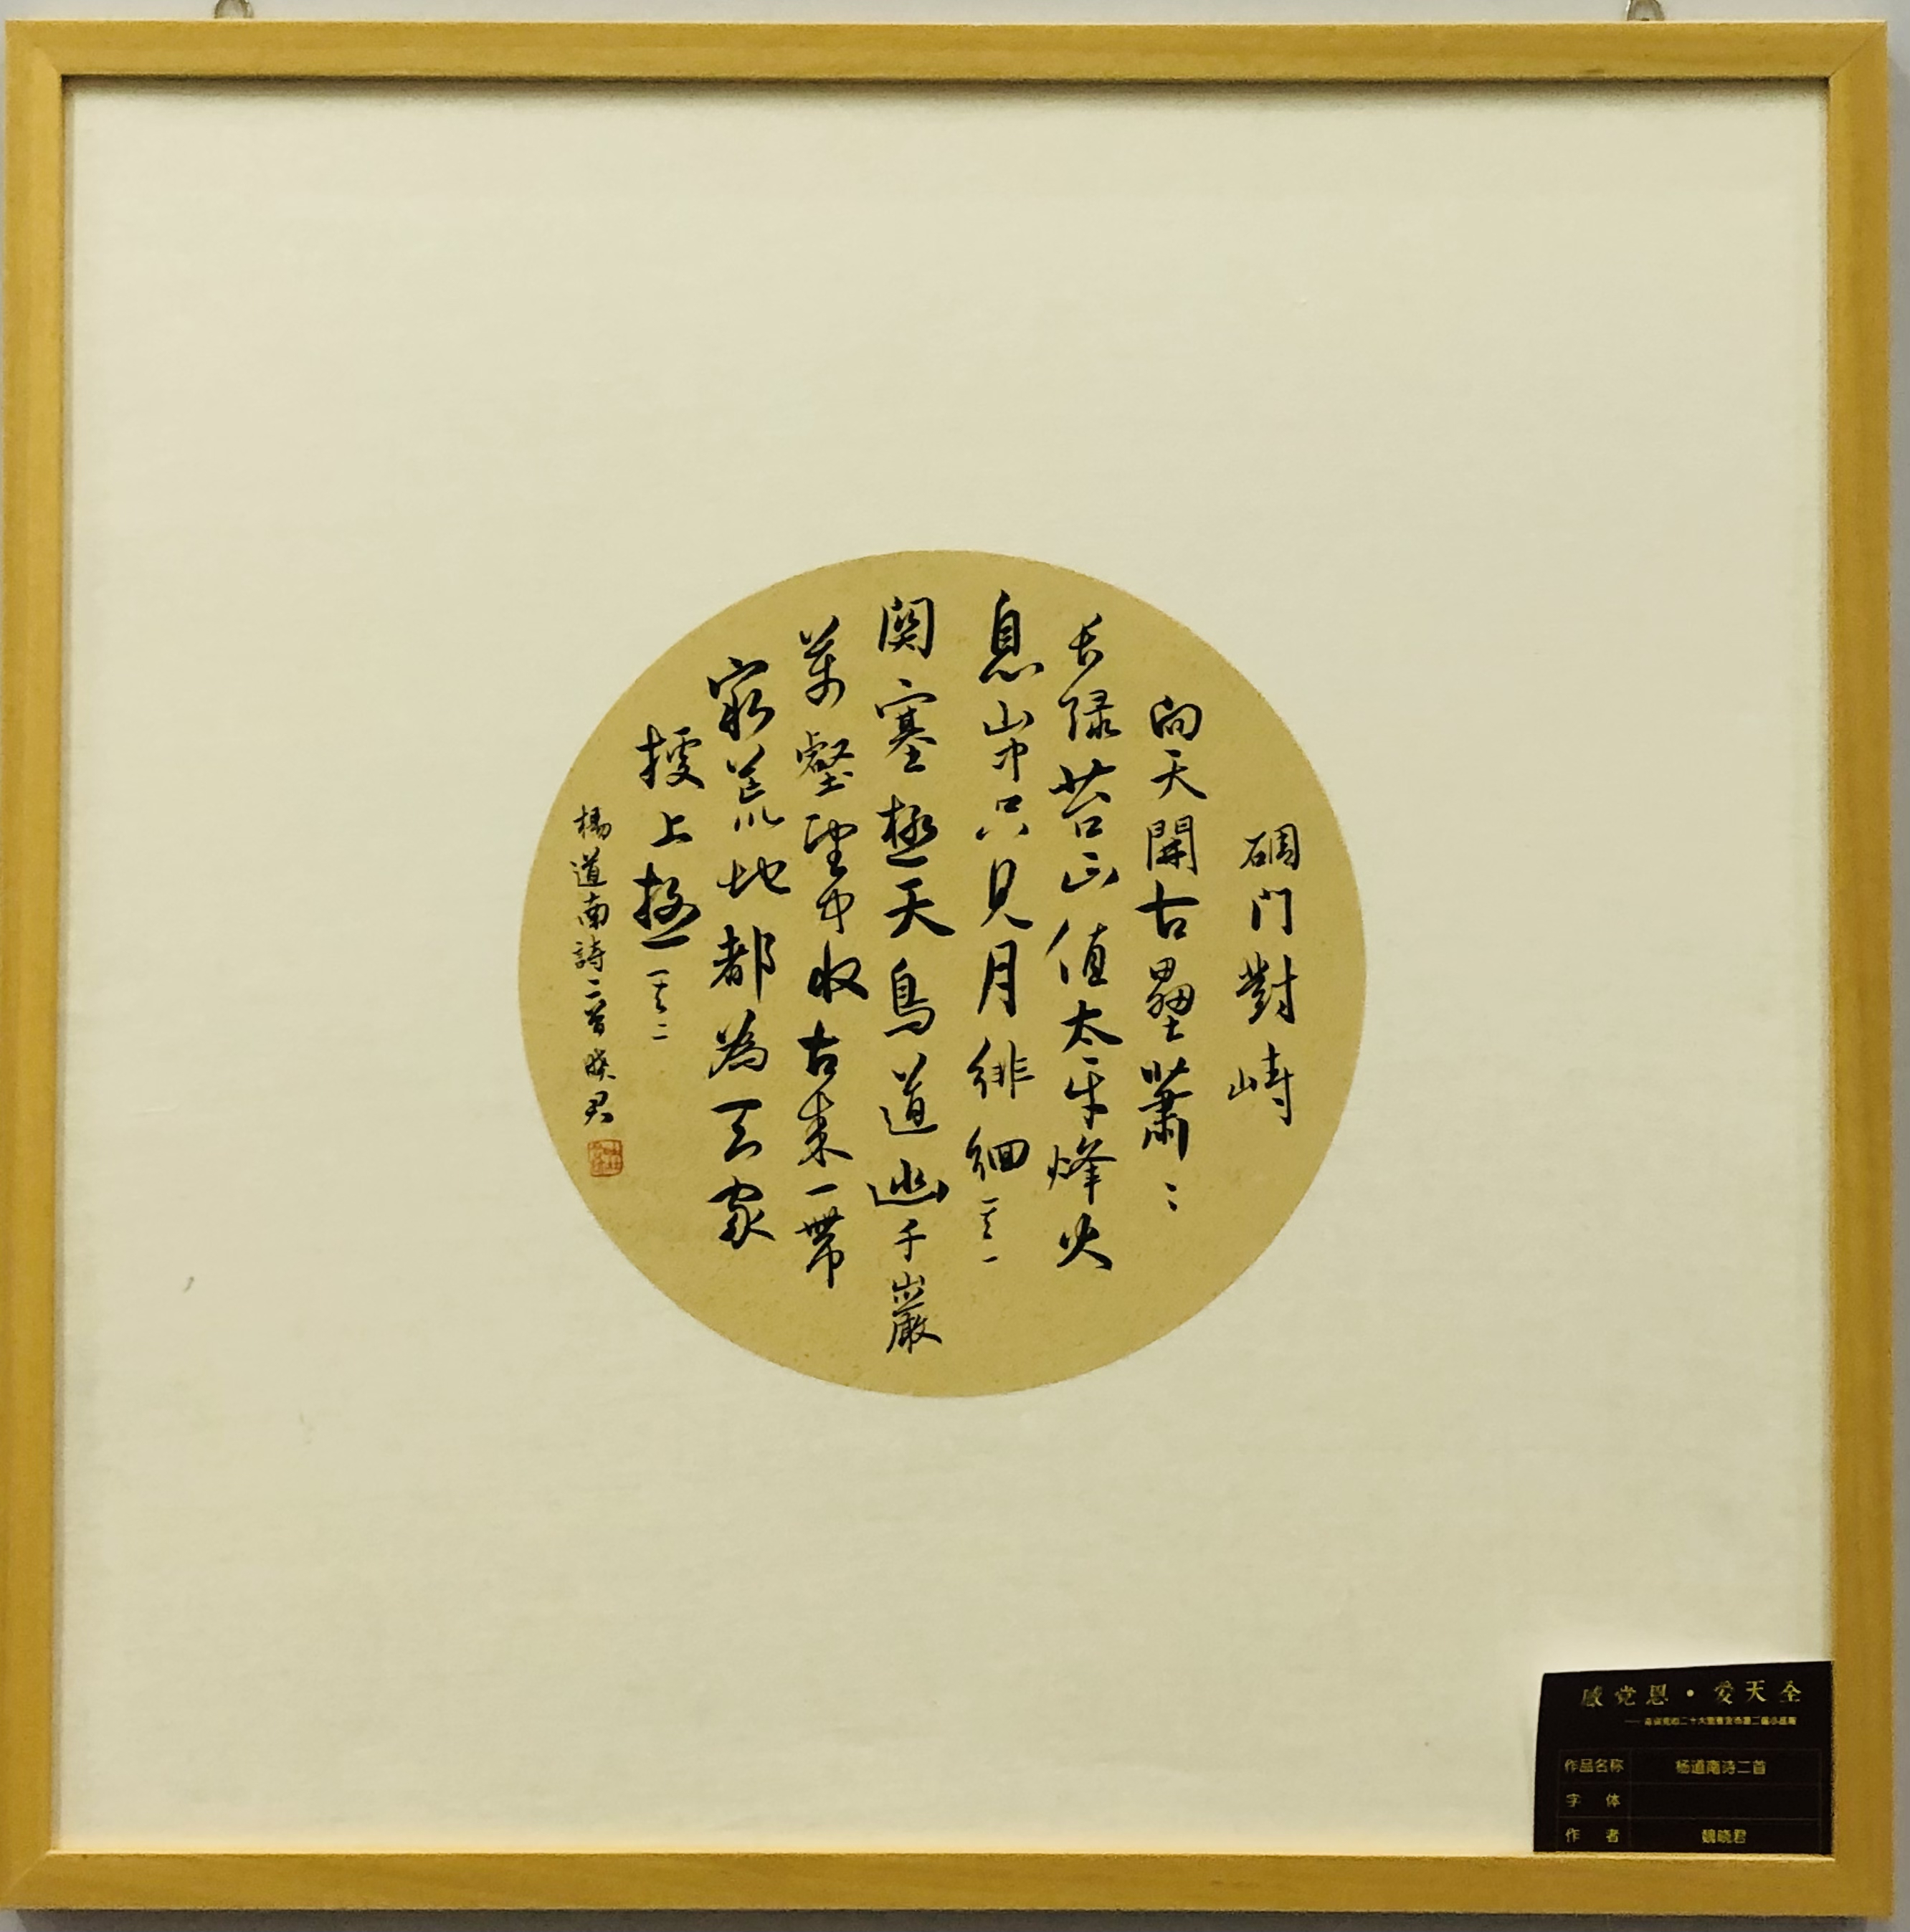 碉门對峙
向天開古壘蕭〻
長緑苔正值太平烽火
息山中只見月徘徊其一
関塞極天鳥道幽千巖
萬壑望中收古来一帶
窮荒地都為天家
上其二
楊道南詩二首曉君
感党恩·爱天全
作品名称 杨道南诗二首
字体
作者 魏晓君